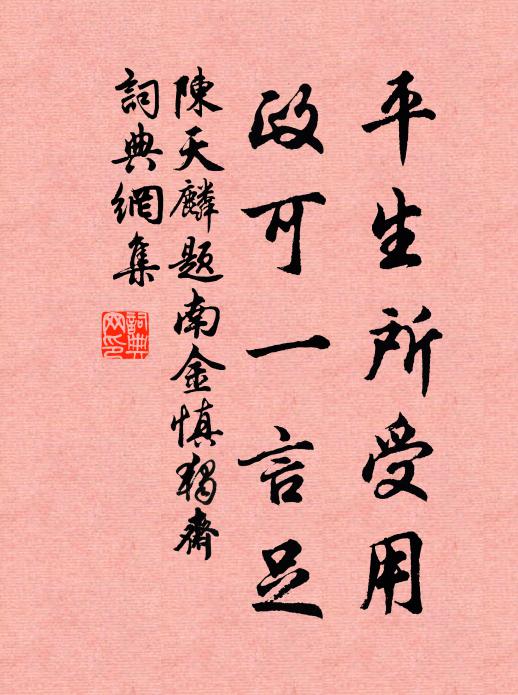 平生所受用
政可一言足
陳天麟題南金慎獨齋
詞典網集
詞典網印